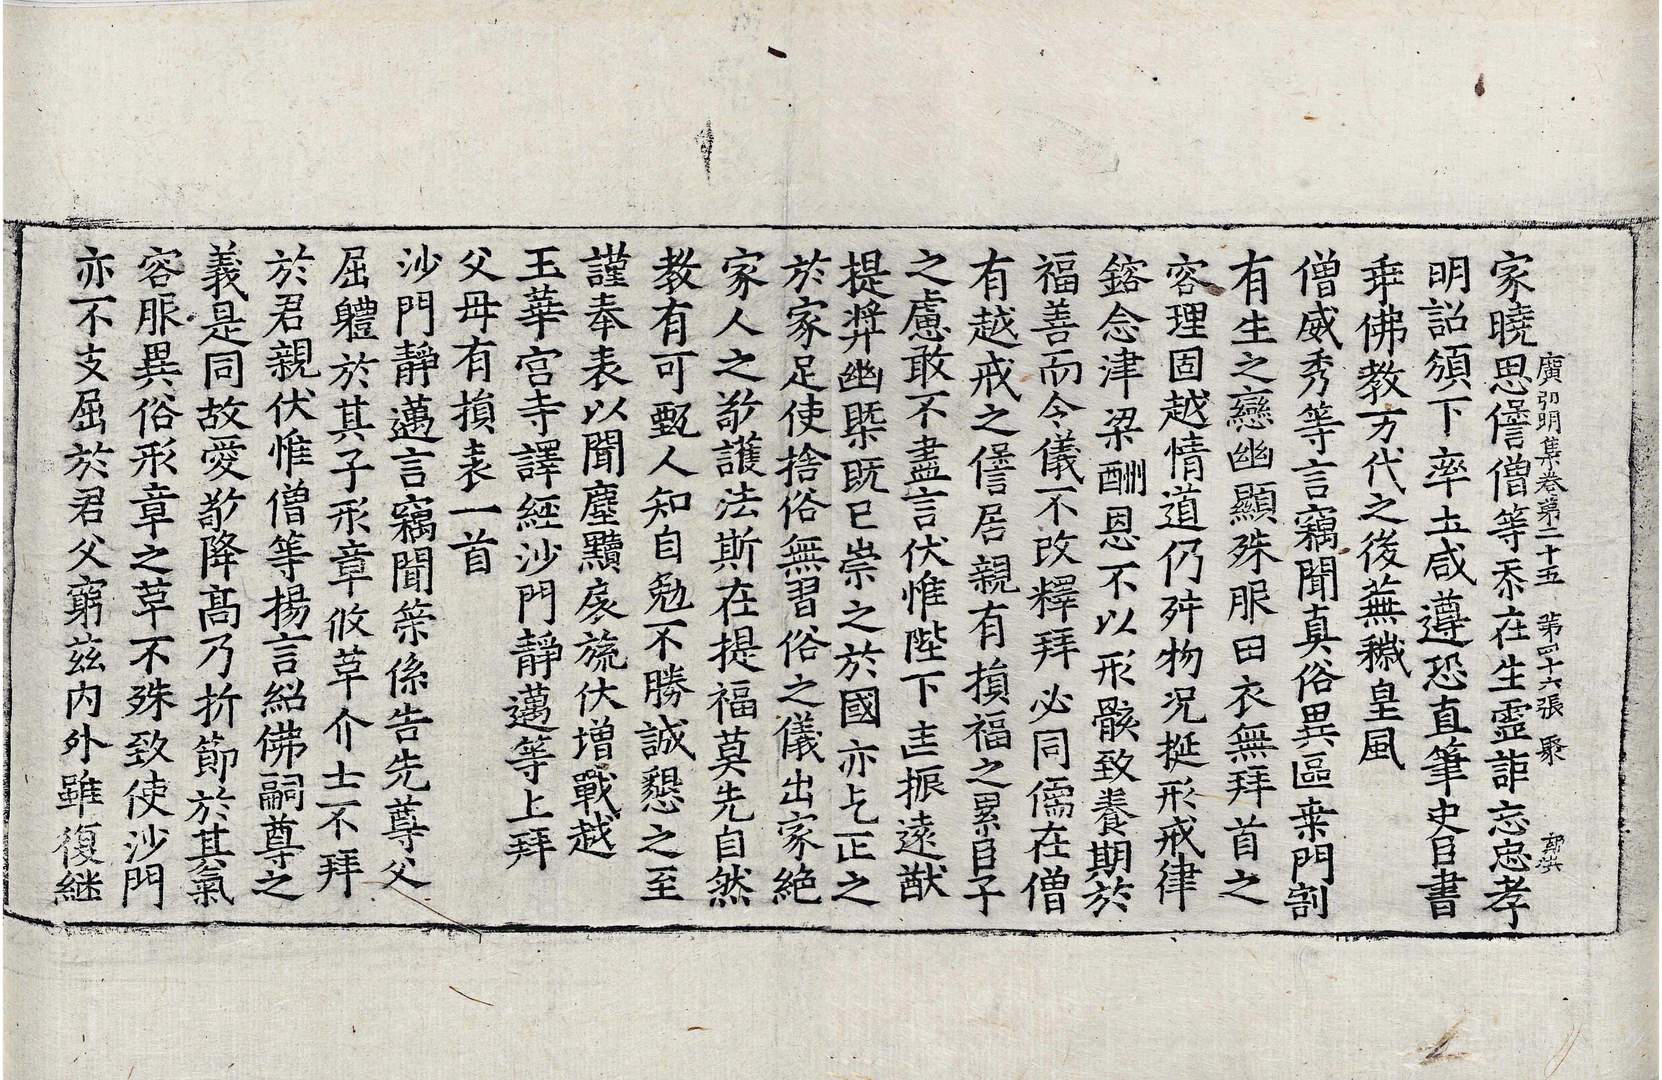 廣弘明集卷第二十五 第四十六張 聚
家曉思僁僧等忝在生靈詎忘忠孝
明詔頒下率土咸遵恐直筆史臣書
乖佛教万代之後蕪穢皇風
僧威秀等言竊聞真俗異區桒門割
有生之戀幽顯殊服田衣無拜首之
容理固越情道仍舛物况挺形戒律
鎔念津梁酬恩不以形骸致養期於
福善而令儀不改釋拜必同儒在僧
有越戒之僁居親有損福之累臣子
之慮敢不盡言伏惟陛下匡振遠猷
提弉幽槩既已崇之於國亦乞正之
於家足使捨俗無習俗之儀出家絶
家人之敬護法斯在提福莫先自然
教有可甄人知自勉不勝誠懇之至
謹奉表以聞塵黷扆旒伏增戰越
玉華宮寺譯經沙門靜邁等上拜
父母有損表一首
沙門靜邁言竊聞策係告先尊父
屈軆於其子形章攸革介士不拜
於君親伏惟僧等揚言紹佛嗣尊之
義是同故愛敬降高乃折節於其氣
容服異俗形章之革不殊致使沙門
亦不支屈於君父窮兹内外雖復繼